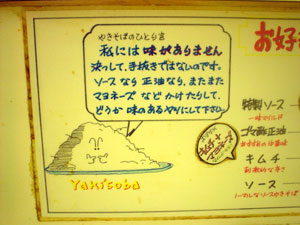 やきそばのひとり言
私には味がありません
決して、手抜きではないのです。
ソースなり正油なり、またまた
マヨネーズなどかけたりして、
どうか味のあるヤツにして下さい。
Yakisoba
お好
特製ソース
一味マイルド
ゴマ醤正油
キムチ
刺激的な辛さ
ソース